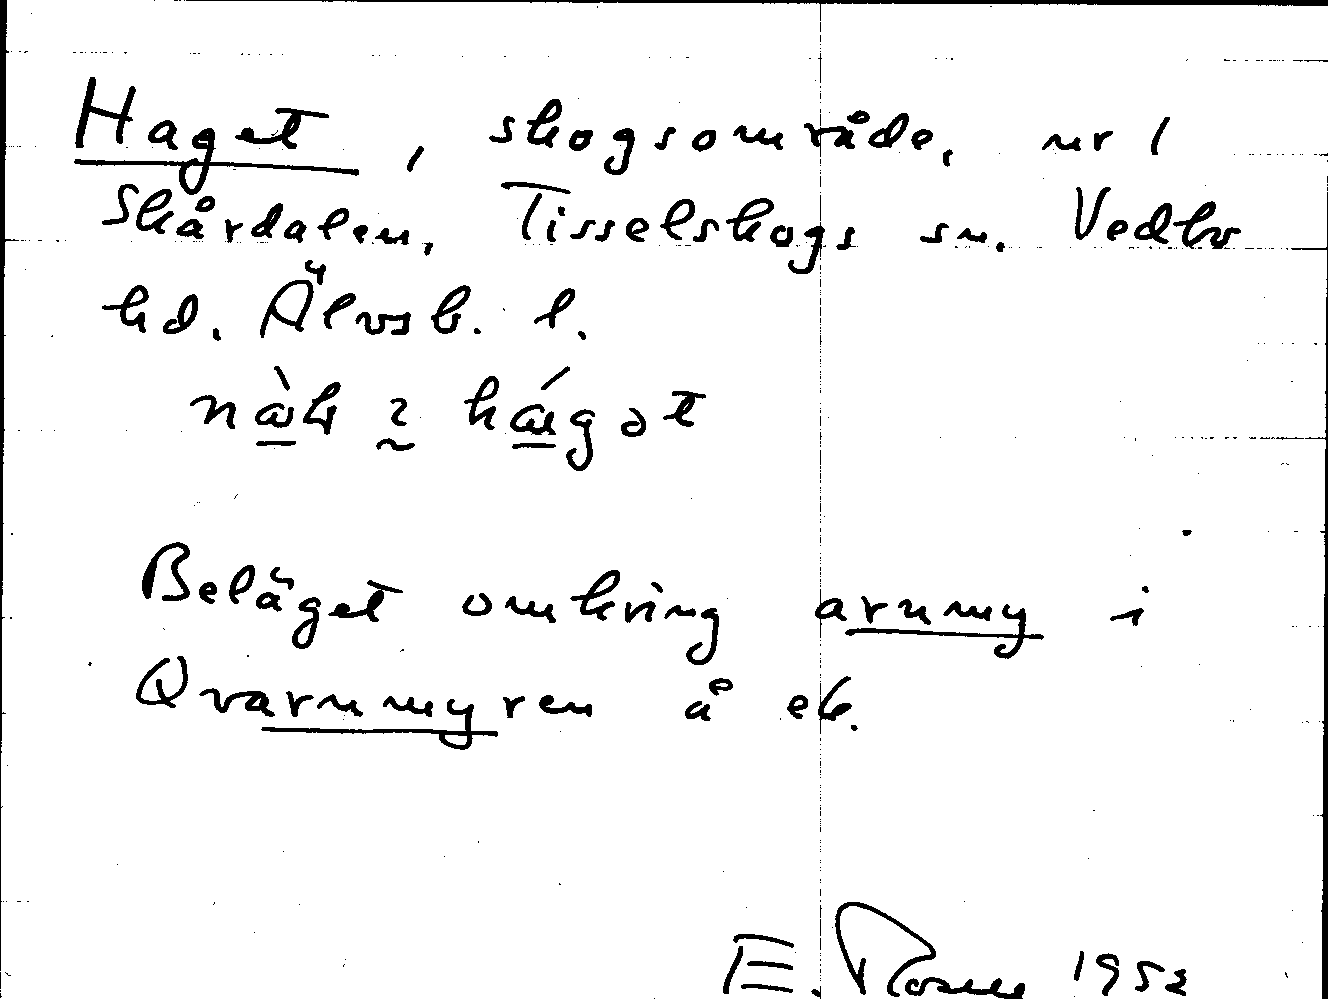 Haget, skogsområde, nr 1
Skårdalen, Tisselskogs sn. Vedbo
hd. Älvsb. l.
hágət
Beläget omkring arnmy i
Qvarnmyren å ek.
E. Rosén 1952